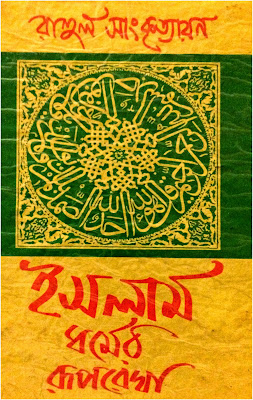 রাহুল সাংকৃত্যায়ন
ইসলাম
ধর্মের
রূপরেখা